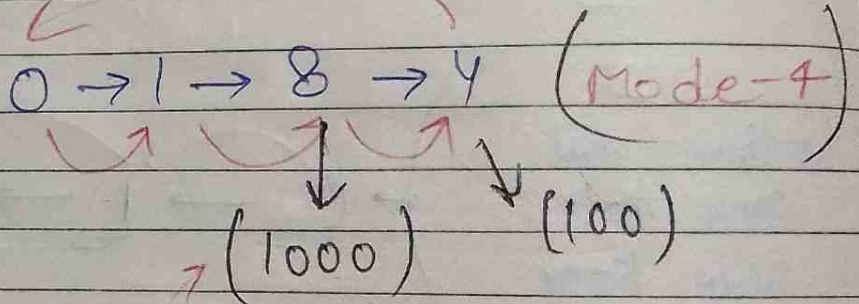 0 → 1 → 8 → 4 (Mode-4)
(1000) (100)